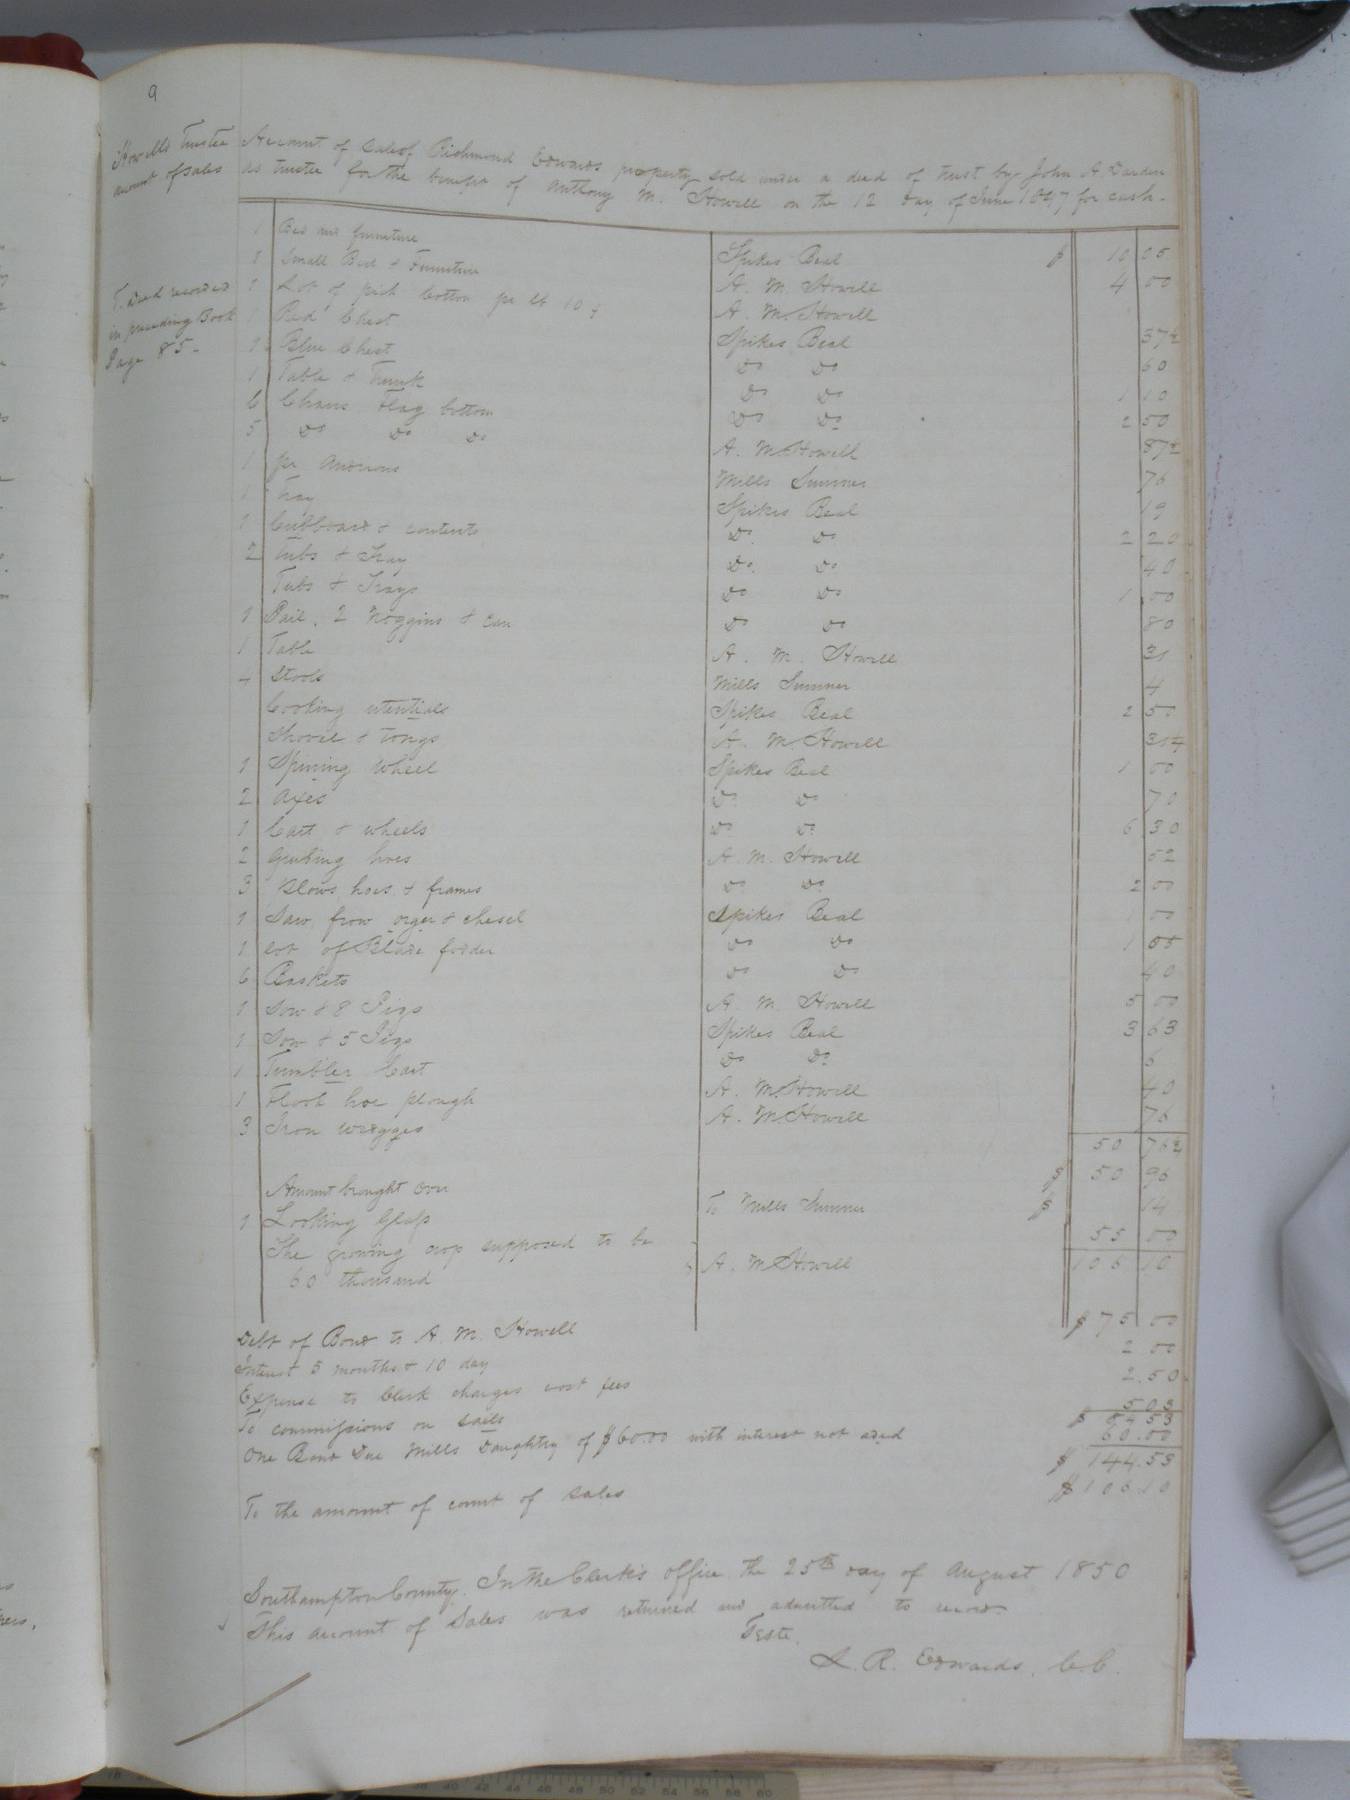 9
Howells Trustee
amount of sales
Account of Sale of Richmond Edwards property sold under a deed of trust by John A Darden
as trustee for the benefit of Anthony M. Howell on the 12 day of June 1847 for cash.
T. Deed recorded
in preceding Book
Page 85.
1 Bed and furniture Spikes Beal $ 10 05
1 Small Bed & Furniture A. M. Howell 4 00
1 Lot of pick Cotton pr lb 10 ¢ A. M. Howell
1 Red Chest Spikes Beal 37½
1 Blue Chest Do Do 60
1 Table & Trunk Do Do 1 10
6 Chairs Flag bottom Do Do 2 50
5 Do Do Do A. M. Howell 87½
1 pr Andirons Mills Sumner 76
1 Tray Spikes Beal 19
1 Cubboard & contents Do Do 2 20
2 Tubs & Tray Do Do 40
Tubs & Trays Do Do 1 00
1 Pail, 2 Noggins & Can Do Do 80
1 Table A. M. Howell 31
4 Stools Mills Sumner 4
Cooking utentials Spikes Beal 2 50
Shovel & tongs A. M. Howell 31¼
1 Spining wheel Spikes Beal 1 00
2 Axes Do Do 70
1 Cart & wheels Do Do 6 30
2 Grubing hoes A. M. Howell 52
3 Plows hoes & frames Do Do 2 00
1 Saw, frow orger & chesel Spikes Beal 1 00
1 Lot of Blade fodder Do Do 1 05
6 Baskets Do Do 40
1 Sow & 8 Pigs A M Howell 5 00
1 Sow & 5 Pigs Spikes Beal 3 63
1 Tumbler Cart Do Do 6
1 Flook hoe plough A. M. Howell 40
3 Iron wedges A. M. Howell 76
50 76¾
Amount brought over $ 50 96
1 Looking Glass To Mills Sumner $ 14
The growing crop supposed to be 55 00
60 thousand A. M. Howell 106 10
Debt of Bond to A. M. Howell $ 75 00
Interest 5 months & 10 day 2 00
Expense to Clerk charges cost fees 2.50
To commissions on sales 5 03
$ 84 53
One Bond Due Mills Daughtry of $60.00 with interest not aded 60.00
$ 144.53
To the amount of count of sales $106.10
Southampton County. In the Clerk's office the 25th day of August 1850
This account of Sales was returned and admitted to record.
Teste.
L. R. Edwards, C.C.